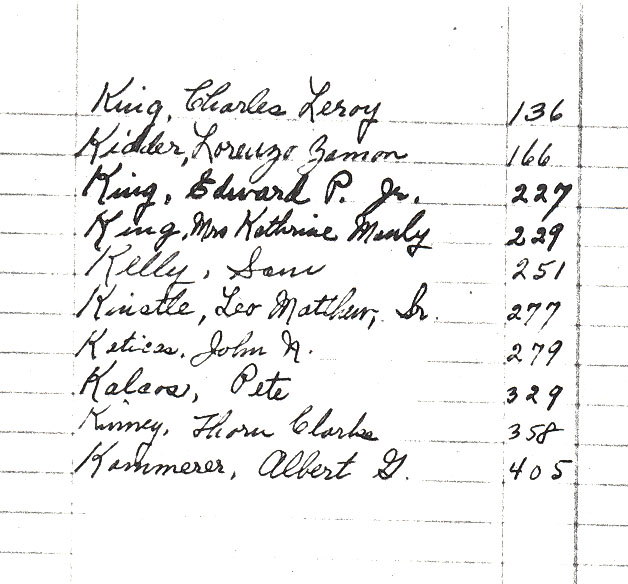 King, Charles Leroy 136
Kidder, Lorenzo Zamon 166
King, Edward P. Jr. 227
King, Mrs Kathrine Manly 229
Kelly, Sam 251
Kinstle, Leo Matthew, Sr. 277
John N. 279
Kalaos, Pete 329
Kinney, Thorn Clarke 358
Kammerer, Albert G. 405